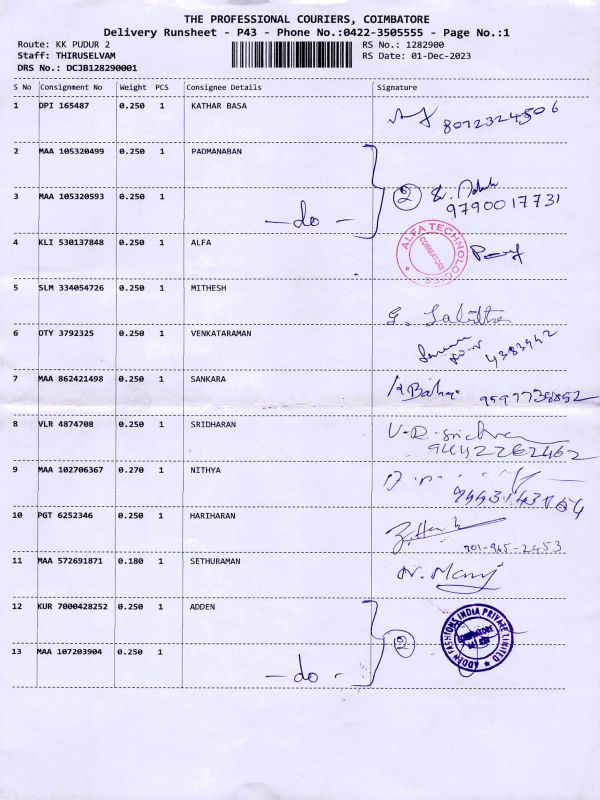 THE PROFESSIONAL COURIERS, COIMBATORE
Delivery Runsheet - P43 - Phone No.:0422-3505555 - Page No.:1
Route: KK PUDUR 2 RS No.: 1282900
Staff: THIRUSELVAM RS Date: 01-Dec-2023
DRS No.: DCJB128290001
S No Consignment No Weight PCS Consignee Details Signature
1 DPI 165487 0.250 1 KATHAR BASA 8072324506
2 MAA 105320499 0.250 1 PADMANABAN
3 MAA 105320593 0.250 1 -do- 2 9790017731
4 KLI 530137848 0.250 1 ALFA ALFA TECHNOLOGIES COIMBATORE
5 SLM 334054726 0.250 1 MITHESH G. Lalitha
6 OTY 3792325 0.250 1 VENKATARAMAN
7 MAA 862421498 0.250 1 SANKARA 9597738852
8 VLR 4874708 0.250 1 SRIDHARAN V-R-Sridharan
9442262462
9 MAA 102706367 0.270 1 NITHYA
10 PGT 6252346 0.250 1 HARIHARAN 301-965-2453
11 MAA 572691871 0.180 1 SETHURAMAN N. Mani
12 KUR 7000428252 0.250 1 ADDEN
13 MAA 107203904 0.250 1 -do- 2 FASHIONS INDIA PRIVATE LIMITED COIMBATORE